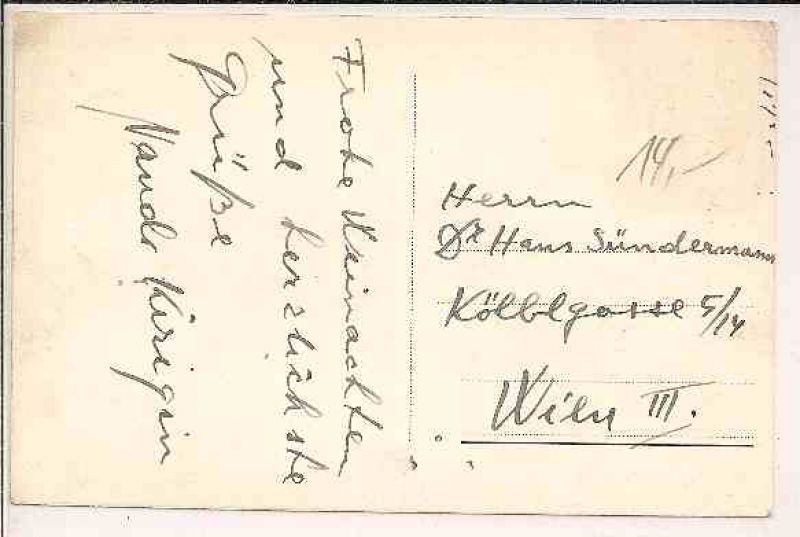 Frohe Weinachten
und herzlichste
Grüße
Nando Kirigin
14,-
Herrn
Dr Hans Sündermann
Kölblgasse 5/14
Wien III.